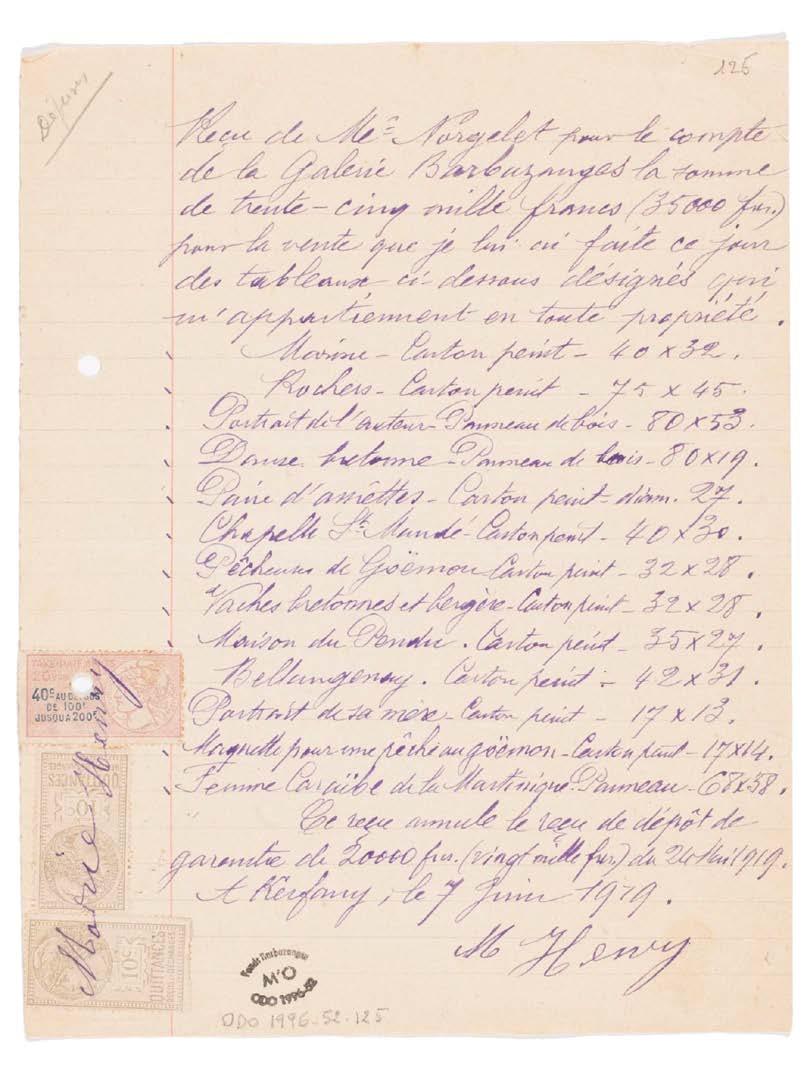 125
Reçu de Me Norgelet pour le compte
de la Galerie Barbazanges la somme
de trente-cinq mille francs (35000 frs.)
pour la vente que je lui ai faite ce jour
des tableaux ci-dessous désignés qui
m'appartiennent en toute propriété.
Marine - Carton peint - 40 x 32.
Rochers - Carton peint - 75 x 45.
Portrait de l'auteur - Panneau de bois - 80 x 53.
Danse bretonne - Panneau de bois - 80 x 19.
Paire d'assiettes - Carton peint - diam. 27.
Chapelle St Maudé - Carton peint - 40 x 30.
Pêcheuses de Goëmon Carton peint - 32 x 28.
Vaches bretonnes et bergère - Carton peint - 32 x 28.
Maison du Pendu. Carton peint - 35 x 27.
Bellangenay. Carton peint - 42 x 31.
Portrait de sa mère - Carton peint - 17 x 13.
Maquette pour une pêche au goëmon - Carton peint - 17 x 14.
Femme Caraïbe de la Martinique. Panneau - 68 x 58.
Ce reçu annule le reçu de dépôt de
garantie de 20000 frs. (vingt mille frs.) du 24 Mai 1919.
A Kerfany, le 7 Juin 1919.
M Henry
40c AU DESSUS
DE 100f
JUSQU'A 200f
QUITTANCES
50c
10c
QUITTANCES
Marie Henry
Fonds Barbazanges
M'O
ODO 1996-52
ODO 1996-52-125